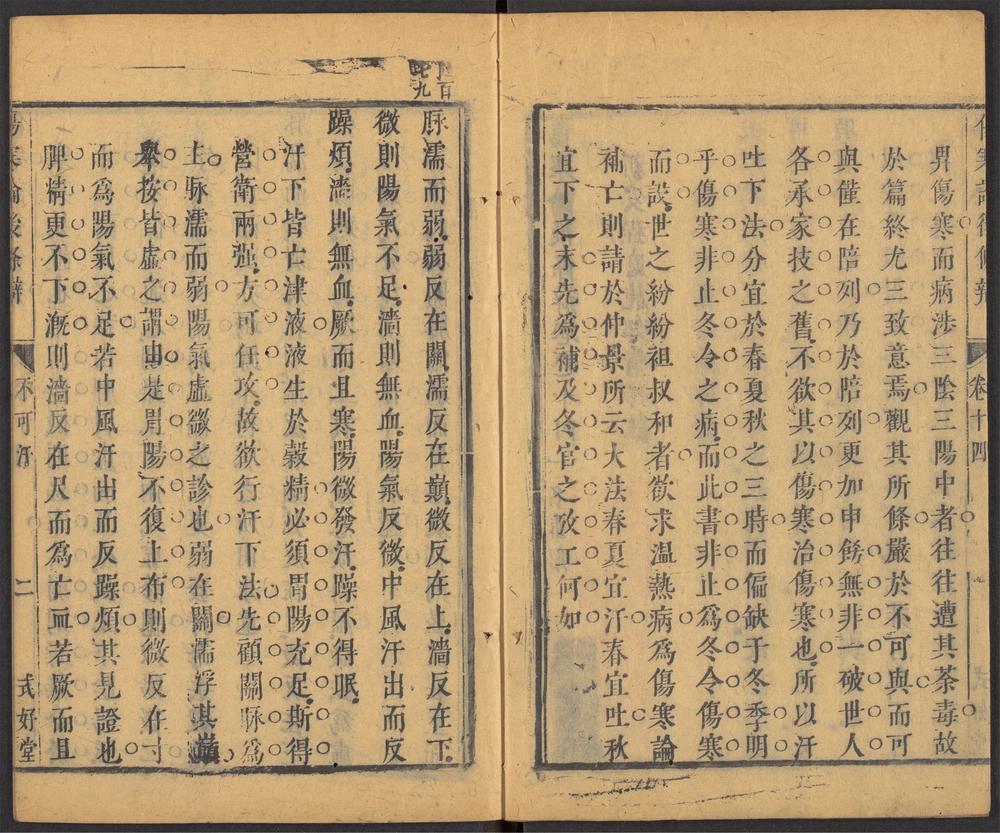 卷十四
昇傷寒而病涉三陰三陽中者往往遭其荼毒故
於篇終尤三致意焉觀其所條嚴於不可與而可
與僅在陪列乃於陪列更加申飭無非一破世人
各承家技之舊不欲其以傷寒治傷寒也所以汗
吐下法分宜於春夏秋之三時而偏缺于冬季明
乎傷寒非止冬令之病而此書非止爲冬令傷寒
而設世之紛紛祖叔和者欲求温熱病爲傷寒論
補亡則請於仲景所云大法春夏宜汗春宜吐秋
宜下之末先爲補及冬官之攷工何如
脉濡而弱弱反在關濡反在巔微反在上濇反在下
微則陽氣不足濇則無血陽氣反微中風汗出而反
躁煩濇則無血厥而且寒陽微發汗躁不得眠
汗下皆亡津液液生於穀精必須胃陽充足斯得
營衛兩强方可任攻故欲行汗下法先顧關脉爲
主脉濡而弱陽氣虛微之診也弱在關濡浮其巔
舉按皆虛之謂由是胃陽不復上布則微反在寸
而爲陽氣不足若中風汗出而反躁煩其見證也
脾精更不下漑則濇反在尺而爲亡血若厥而且
傷寒論後條辯
不可汗
二
式好堂